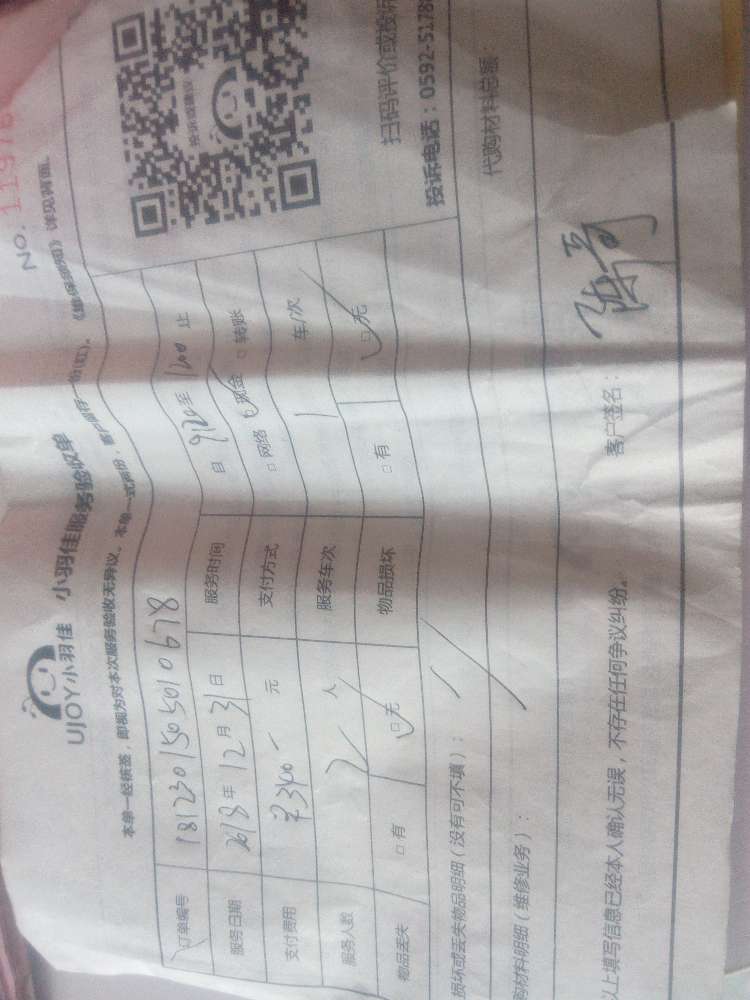 No. 1197
UJOY小羽佳 小羽佳服务验收单
本单一经核签，即视为对本次服务验收无异议。本单一式两份，客户留存一份(红)。《维保须知》详见背面。
订单编号 181230150501 0678
服务日期 2018年12月31日 服务时间 自 920 至 1200 止
支付费用 ¥340- 元 支付方式 □网络 □现金 □转账
服务人数 2 人 服务车次 1 车/次
物品丢失 □有 □无 物品损坏 □有 □无
投诉或建议
扫码评价或投诉
投诉电话：0592-5178
损坏或丢失物品明细（没有可不填）：
购材料明细（维修业务）：
代购材料总额：
以上填写信息已经本人确认无误，不存在任何争议纠纷。
客户签名：